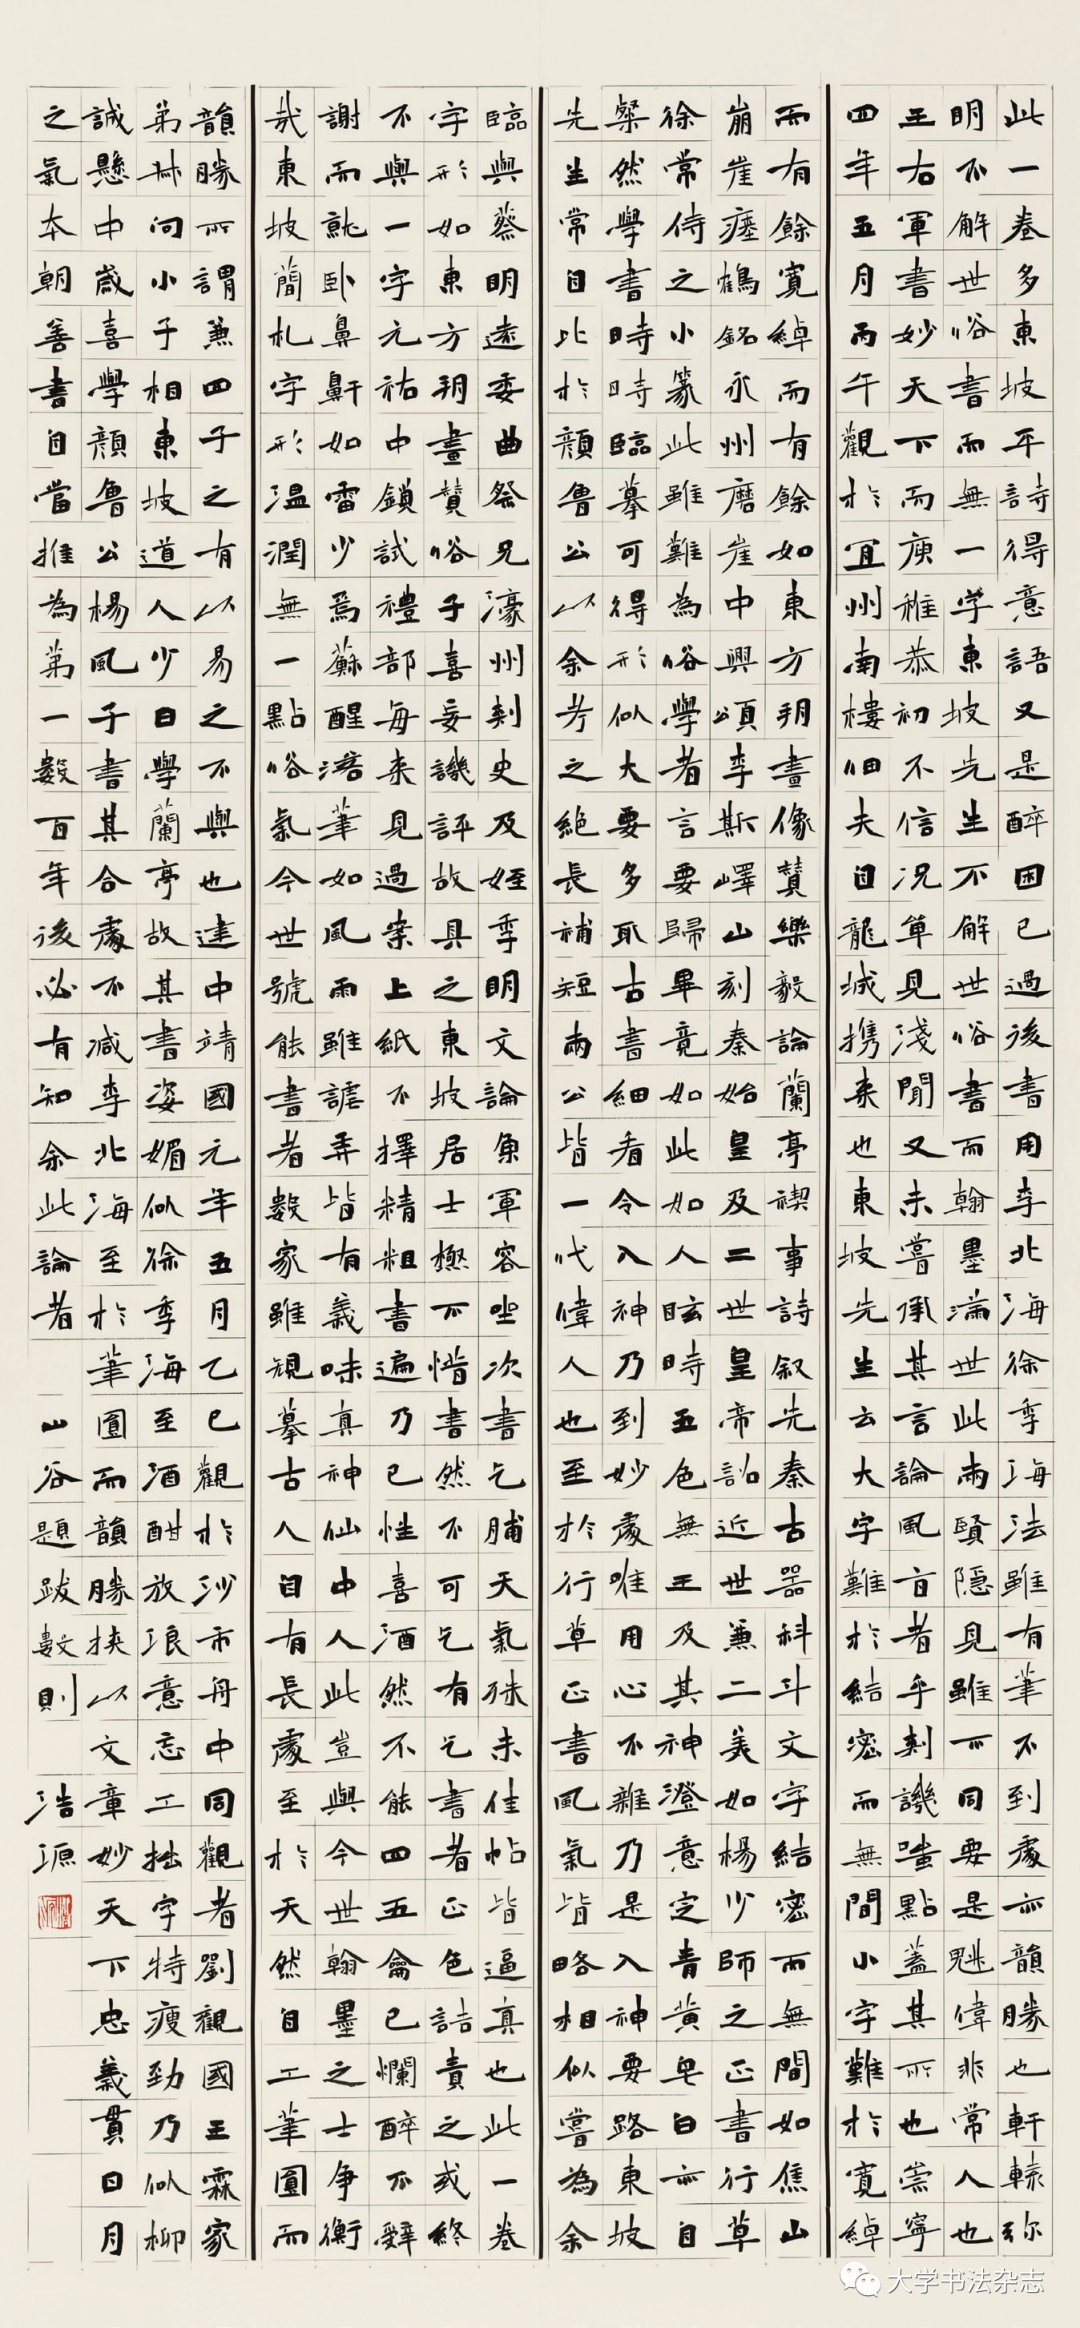 此一卷多東坡平詩得意語又是醉困已過後書用李北海徐季海法雖有筆不到處亦韻勝也軒轅弥
明不解世俗書而無一學東坡先生不解世俗書而翰墨滿世此兩賢隠見雖不同要是魁偉非常人也
王右軍書妙天下而庾稚恭初不信况單見淺聞又未嘗承其言論風旨者乎刺譏嗤點蓋其所也崇寧
四年五月丙午觀於宜州南樓佃夫自龍城携来也東坡先生云大字難於結密而無間小字難於寬綽
而有餘寬綽而有餘如東方朔畫像贊樂毅論蘭亭禊事詩叙先秦古器科斗文字結密而無間如焦山
崩崖瘞鶴銘永州磨崖中興頌李斯嶧山刻秦始皇及二世皇帝詔近世兼二美如楊少師之正書行草
徐常侍之小篆此雖難為俗學者言要歸畢竟如此如人眩時五色無王及其神澄意定青黄皂白亦自
粲然學書時時臨摹可得形似大要多取古書細看令入神乃到妙處唯用心不雜乃是入神要路東坡
先生常自比於顔魯公以余考之絶長補短兩公皆一代偉人也至於行草正書風氣皆略相似嘗為余
臨與蔡明遠委曲祭兄濠州刺史及姪季明文論魚軍容坐次書乞脯天氣殊未佳帖皆逼真也此一卷
字形如東方朔畫贊俗子喜妄譏評故具之東坡居士極不惜書然不可乞有乞書者正色詰責之或終
不與一字元祐中鎖試禮部每来見過案上紙不擇精粗書遍乃已性喜酒然不能四五龠已爛醉不辭
謝而就卧鼻鼾如雷少焉蘇醒落筆如風雨雖謔弄皆有義味真神仙中人此豈與今世翰墨之士争衡
哉東坡簡札字形温潤無一點俗氣今世號能書者數家雖規摹古人自有長處至於天然自工筆圓而
韻勝所謂兼四子之有以易之不與也建中靖國元年五月乙巳觀於沙市舟中同觀者劉觀國王霖家
弟叔向小子相東坡道人少日學蘭亭故其書姿媚似徐季海至酒酣放浪意忘工拙字特瘦勁乃似柳
誠懸中歲喜學顔魯公楊風子書其合處不减李北海至於筆圓而韻勝挟以文章妙天下忠義貫日月
之氣本朝善書自當推為第一數百年後必有知余此論者 山谷題跋數則 浩源
大学书法杂志